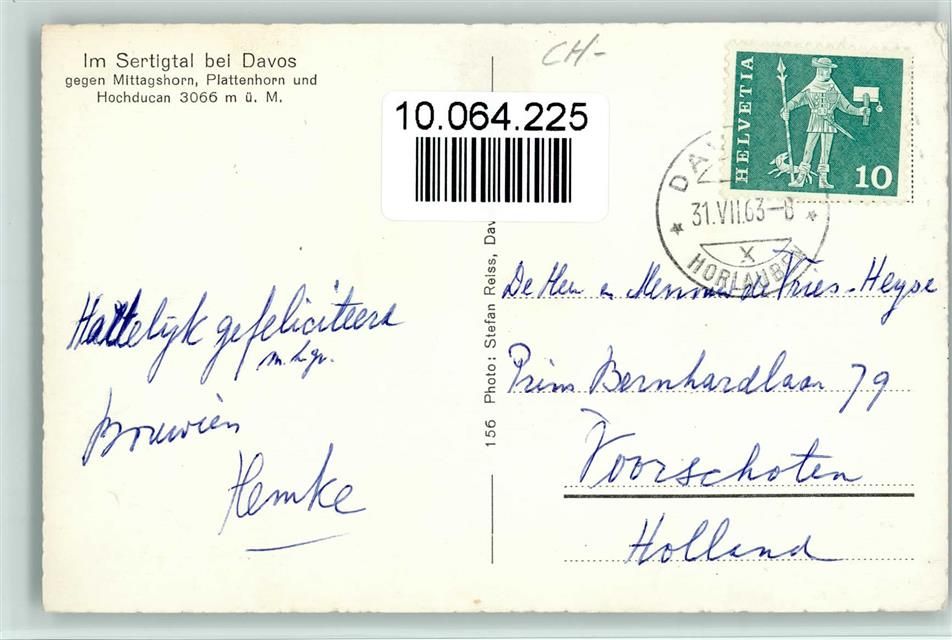 Im Sertigtal bei Davos
gegen Mittagshorn, Plattenhorn und
Hochducan 3066 m ü. M.
CH-
10.064.225
HELVETIA
10
31.VII.63-8
X
HORLAUBEN
156 Photo: Stefan Reiss, Dav
Hartelijk gefeliciteerd
m. h. gr.
Hemke
De Heer en Mevrouw de Vries-Heyse
Prins Bernhardlaan 79
Voorschoten
Holland